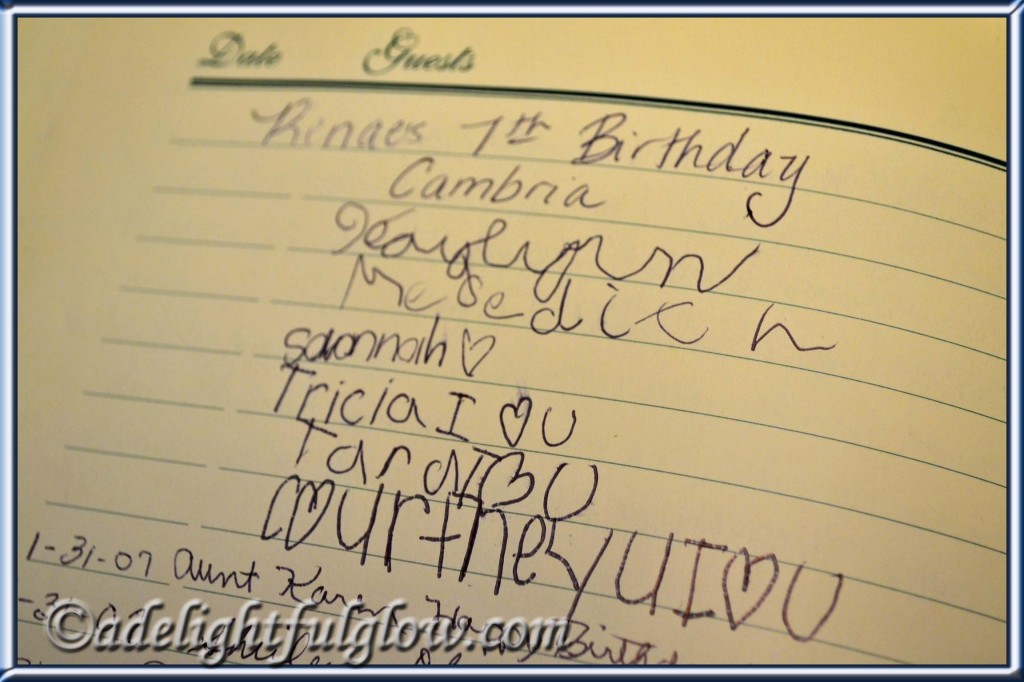 Date Guests
Renaes 7th Birthday
Cambria
Kaylynn
Meredith
savannah ♡
Tricia I ♡ U
Tara I ♡ U
courtney U I ♡ U
1-31-07 Aunt Karin, Happy Birthd
©adelightfulglow.com